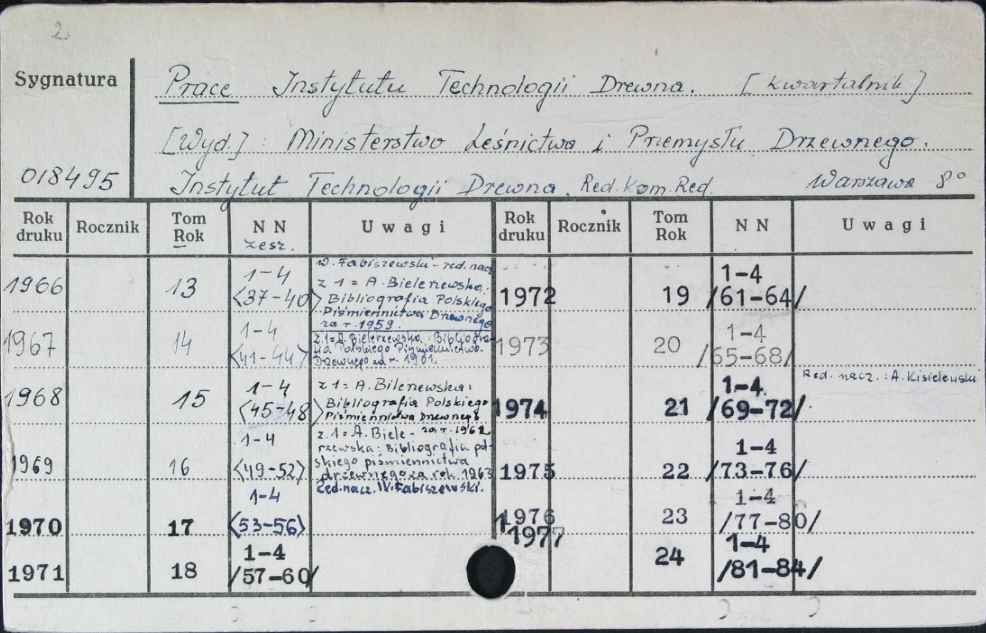 2
Sygnatura
Prace Instytutu Technologii Drewna. [Kwartalnik]
[Wyd.]: Ministerstwo Leśnictwa i Przemysłu Drzewnego.
018495
Instytut Technologii Drewna. Red. Kom. Red. Warszawa 8°
Rok druku Rocznik Tom Rok N N zesz. Uwagi Rok druku Rocznik Tom Rok N N Uwagi
1966 13 1-4 <37-40>
W. Fabiszewski - red. nacz
z 1 = A. Bielerzewska:
Bibliografia Polskiego
Piśmiennictwa Drzewnego
za r. 1959.
1967 14 1-4 <41-44>
z. 1 = A. Bielerzewska: Bibliogra-
fia Polskiego Piśmiennictwa
Drzewnego za r. 1961.
1968 15 1-4 <45-48>
z 1 = A. Bilenewska:
Bibliografia Polskiego
Piśmiennictwa Drzewneg
za r. 1962
1969 16 1-4 <49-52>
z. 1 = A. Biele-
rzewska: Bibliografia pol-
skiego piśmiennictwa
drzewnego za rok 1963
Red. nacz. W. Fabiszewski.
1970 17 1-4 <53-56>
1971 18 1-4 /57-60/
1972 19 1-4 /61-64/
1973 20 1-4 /65-68/
Red. nacz.: A. Kisielewski
1974 21 1-4 /69-72/
1975 22 1-4 /73-76/
1976 23 1-4 /77-80/
1977 24 1-4 /81-84/